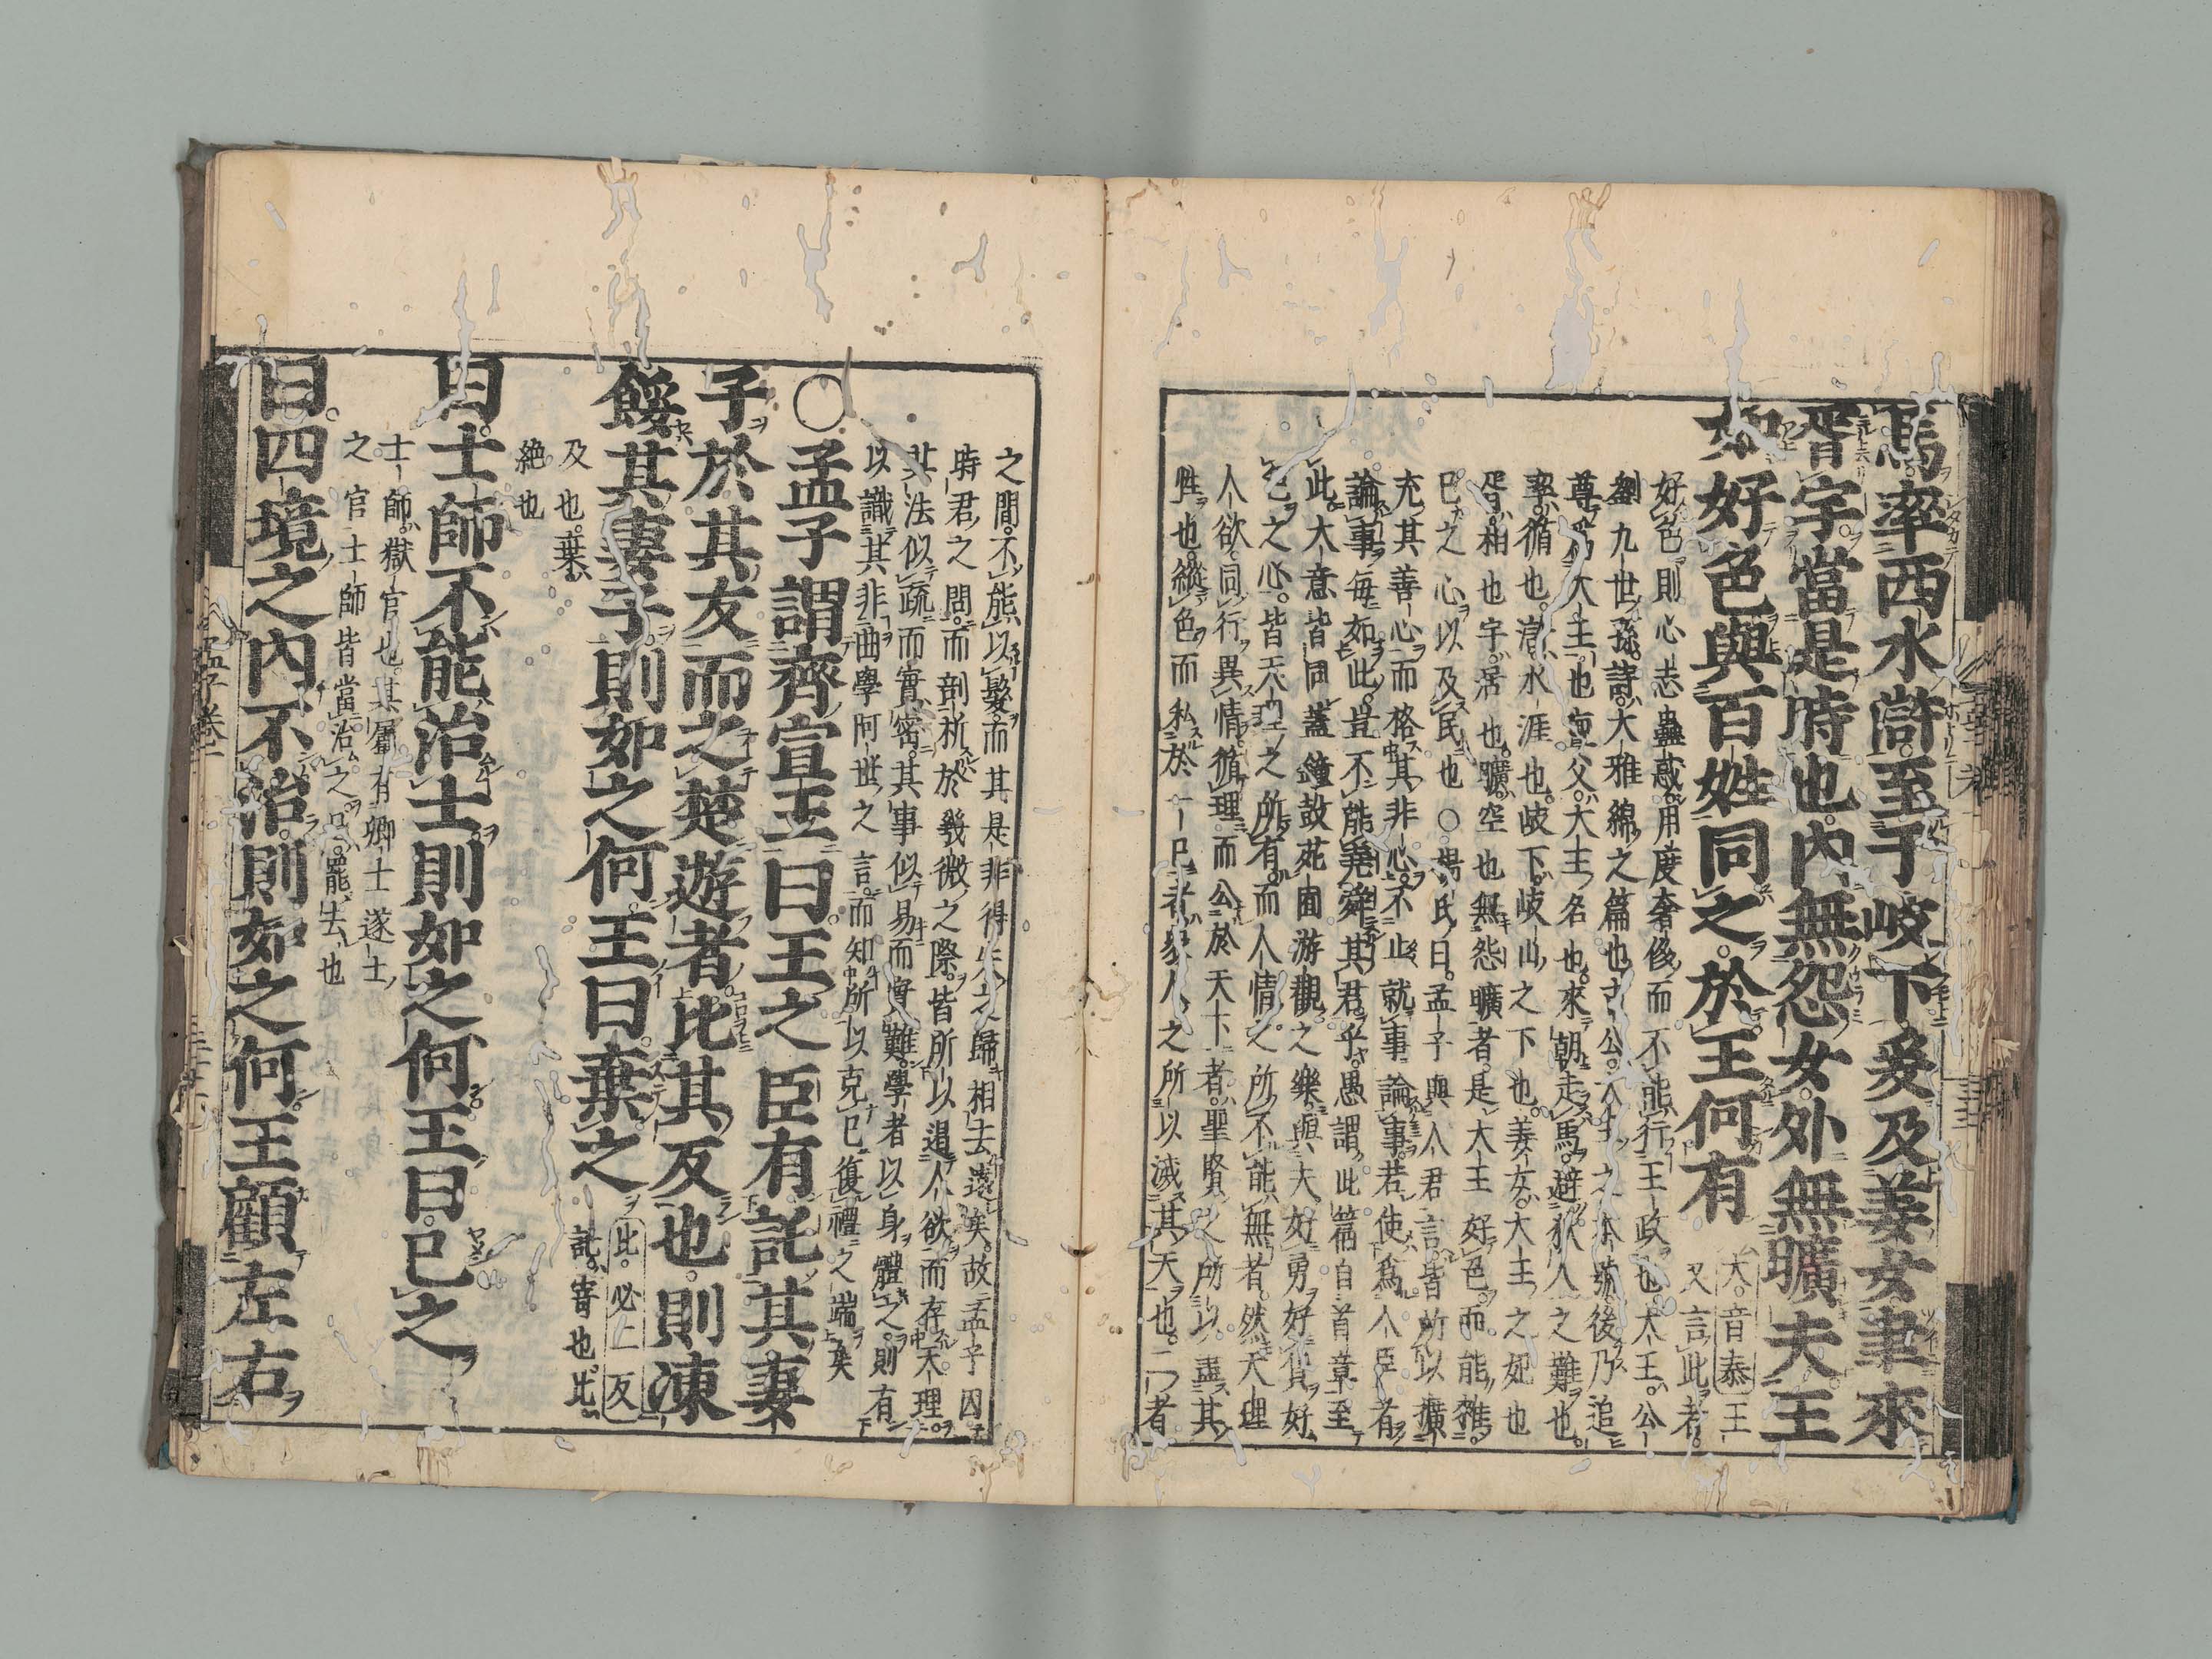 馬率西水滸至于岐下爰及姜女聿來
胥宇當是時也內無怨女外無曠夫王
如好色與百姓同之於王何有
大音泰王
又言此者
好色則心志蠱惑用度奢侈而不能行王政也大王公
劉九世孫詩大雅綿之篇也古公大王之本號後乃追
尊爲大王也亶父大王名也來朝走馬避狄人之難也
率循也滸水涯也岐下岐山之下也姜女大王之妃也
胥相也宇居也曠空也無怨曠者是大王好色而能推
己之心以及民也○楊氏曰孟子與人君言皆所以擴
充其善心而格其非心不止就事論事若使爲人臣者
論事每如此豈不能堯舜其君乎愚謂此篇自首章至
此大意皆同蓋鐘鼓苑囿游觀之樂與夫好勇好貨好
色之心皆天理之所有而人情之所不能無者然天理
人欲同行異情循理而公於天下者聖賢之所以盡其
性也縱色而私於一己者衆人之所以滅其天也二者
之間不能以髮而其是非得失之歸相去遠矣故孟子因
時君之問而剖析於幾微之際皆所以遏人欲而存天理
其法似疏而實密其事似易而實難學者以身體之則有
以識其非曲學阿世之言而知所以克己復禮之端矣
○孟子謂齊宣王曰王之臣有託其妻
子於其友而之楚遊者比其反也則凍
餒其妻子則如之何王曰棄之
比必二反
託寄也比
及也棄
絕也
曰士師不能治士則如之何王曰已之
士師獄官也其屬有鄉士遂士
之官士師皆當治之已罷去也
曰四境之內不治則如之何王顧左右
孟子卷一